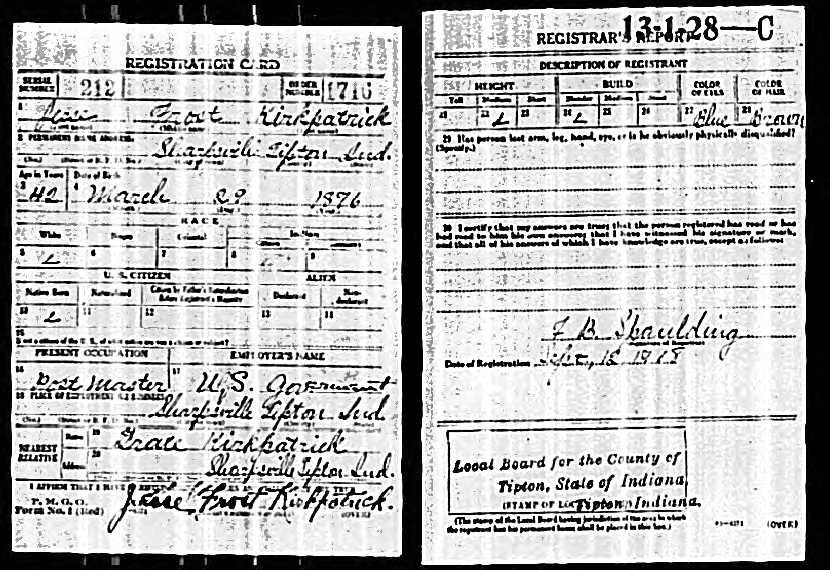 REGISTRATION CARD
SERIAL NUMBER 212 ORDER NUMBER 1716
1 Jesse Frost Kirkpatrick
2 PERMANENT HOME ADDRESS:
Sharpsville Tipton Ind.
Age in Years Date of Birth
3 42 4 March 29 1876
RACE
White Negro Oriental Indian
5 6 7 8 9
U. S. CITIZEN ALIEN
Native Born Naturalized Citizen by Father's Naturalization Before Registrant's Majority Declarant Non-declarant
10 11 12 13 14
15
If not a citizen of the U. S., of what nation are you a citizen or subject?
PRESENT OCCUPATION EMPLOYER'S NAME
16 Post Master 17 U.S. Goverment
18 PLACE OF EMPLOYMENT OR BUSINESS:
Sharpsville Tipton Ind
NEAREST RELATIVE
Name 19 Grace Kirkpatrick
Address 20 Sharpsville Tipton Ind.
I AFFIRM THAT I HAVE
P. M. G. O.
Form No. 1 (Red)
Jesse Frost Kirkpatrick.
(OVER)
13-1-28—C
REGISTRAR'S REPORT
DESCRIPTION OF REGISTRANT
HEIGHT BUILD COLOR OF EYES COLOR OF HAIR
Tall Medium Short Slender Medium Stout
21 22 23 24 25 26 27 Blue 28 Brown
29 Has person lost arm, leg, hand, eye, or is he obviously physically disqualified?
(Specify.)
30 I certify that my answers are true; that the person registered has read or has
had read to him his own answers; that I have witnessed his signature or mark,
and that all of his answers of which I have knowledge are true, except as follows:
F B Spaulding
Date of Registration Sept, 12 1918
Local Board for the County of
Tipton, State of Indiana
Tipton, Indiana.
(STAMP OF LOCAL
(The stamp of the Local Board having jurisdiction of the area in which
the registrant has his permanent home shall be placed in this box.)
(OVER)